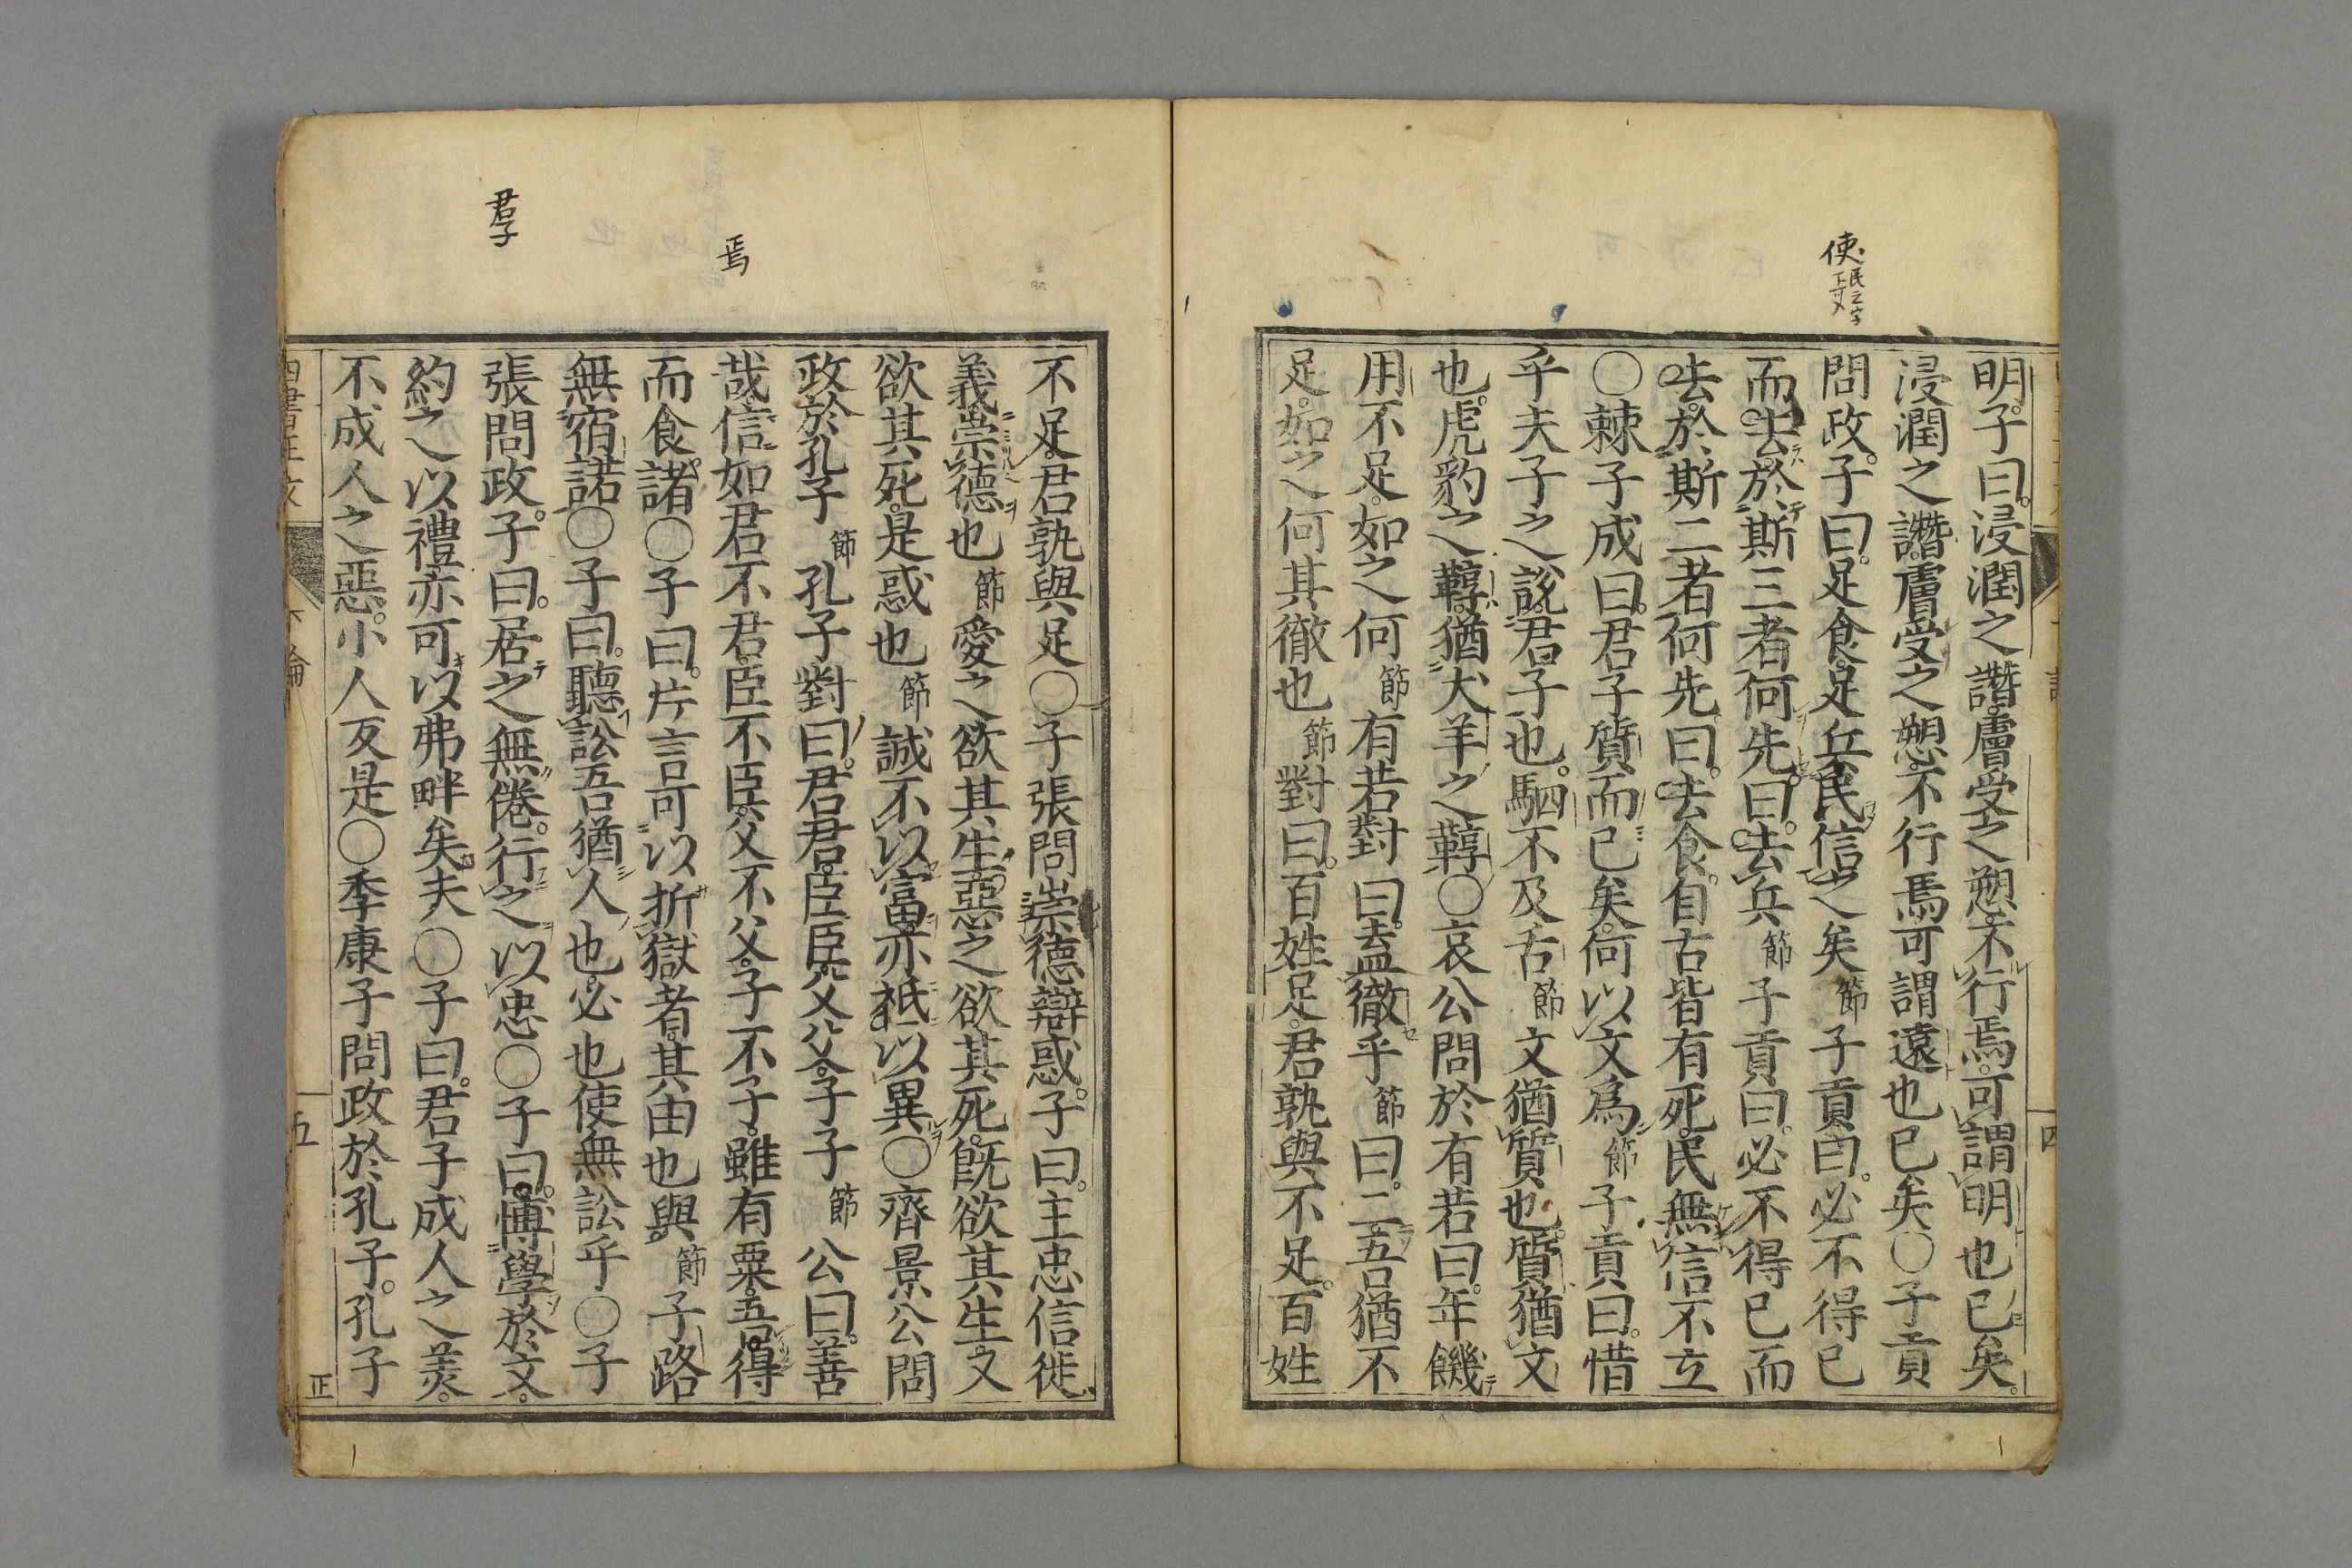 使民之字
明子曰。浸潤之譖膚受之愬不行焉可謂明也已矣。
浸潤之譖膚受之愬不行焉可謂遠也已矣○子貢
問政。子曰。足食足兵民信之矣節子貢曰。必不得已
而去於斯三者何先。曰。去兵節子貢曰。必不得已而
去於斯二者何先。曰。去食。自古皆有死。民無信不立
○棘子成曰。君子質而已矣。何以文爲節子貢曰。惜
乎夫子之說君子也。駟不及舌節文猶質也質猶文
也。虎豹之鞹猶犬羊之鞹○哀公問於有若曰。年饑
用不足。如之何節有若對曰。盍徹乎節曰。二吾猶不
足。如之何其徹也節對曰。百姓足。君孰與不足。百姓
四
焉
君子
不足。君孰與足○子張問崇德辯惑。子曰。主忠信徙
義崇德也節愛之欲其生惡之欲其死。既欲其生又
欲其死。是惑也節誠不以富亦祇以異○齊景公問
政於孔子節孔子對曰。君君。臣臣。父父。子子節公曰。善
哉。信如君不君。臣不臣。父不父。子不子。雖有粟。吾得
而食諸○子曰。片言可以折獄者。其由也與。節子路
無宿諾○子曰。聽訟吾猶人也。必也使無訟乎○子
張問政。子曰。居之無倦。行之以忠○子曰。博學於文。
約之以禮亦可以弗畔矣夫○子曰。君子成人之美。
不成人之惡。小人反是○季康子問政於孔子。孔子
四書正文 下論 五 正